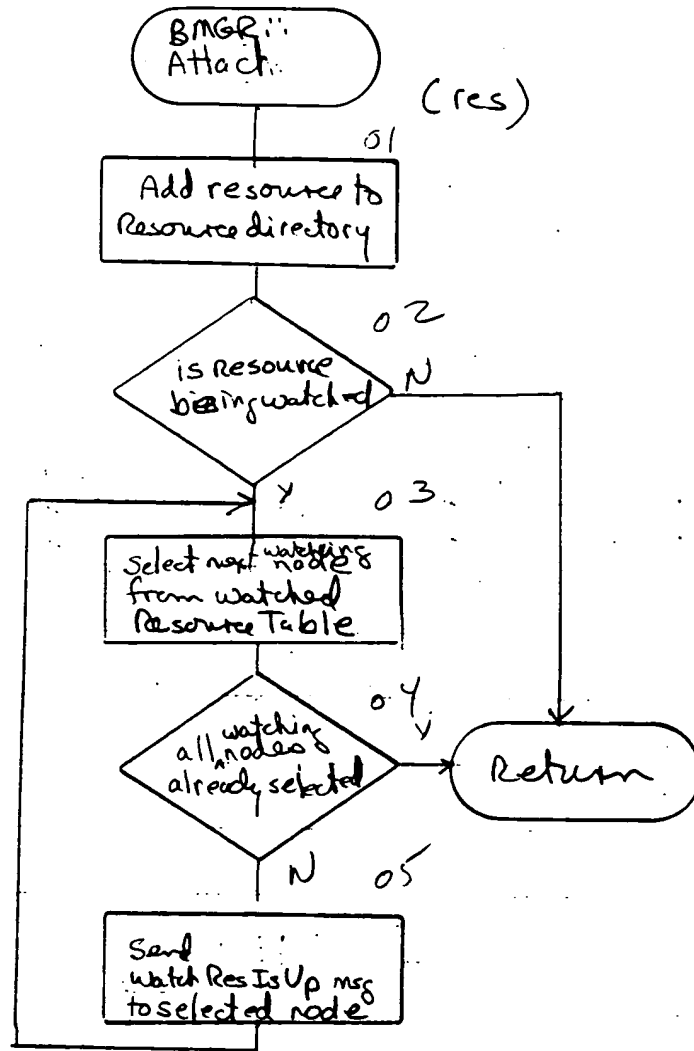 BMGR::
Attach
(res)
01
Add resource to
Resource directory
02
is Resource
being watched
N
Y
03
Select next watching node
from watched
Resource Table
04
all watching nodes
already selected
Y
Return
N
05
Send
Watch Res Is Up msg
to selected node